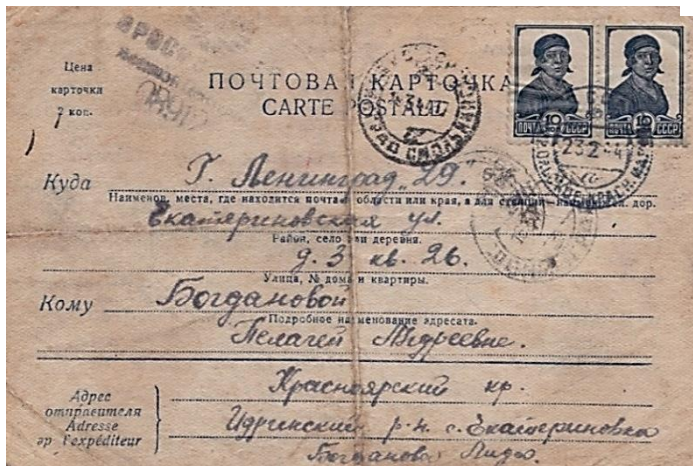 Цена
карточки
2 коп.
ПОЧТОВАЯ КАРТОЧКА
CARTE POSTALE
10
ПОЧТА СССР
10
ПОЧТА СССР
23 2 44
Куда
Г. Ленинград 29.
Наименов. места, где находится почта области или края, а для станций дор.
Екатериновская ул.
Район, село или деревня.
д. 3 кв. 26.
Улица, № дома и квартиры.
Кому
Богдановой
Подробное наименование адресата.
Пелагеи Андреевне.
Адрес
отправителя
Adresse
de l'expéditeur
Красноярский кр.
Идринский р-н с. Екатериновка
Богданова Лида